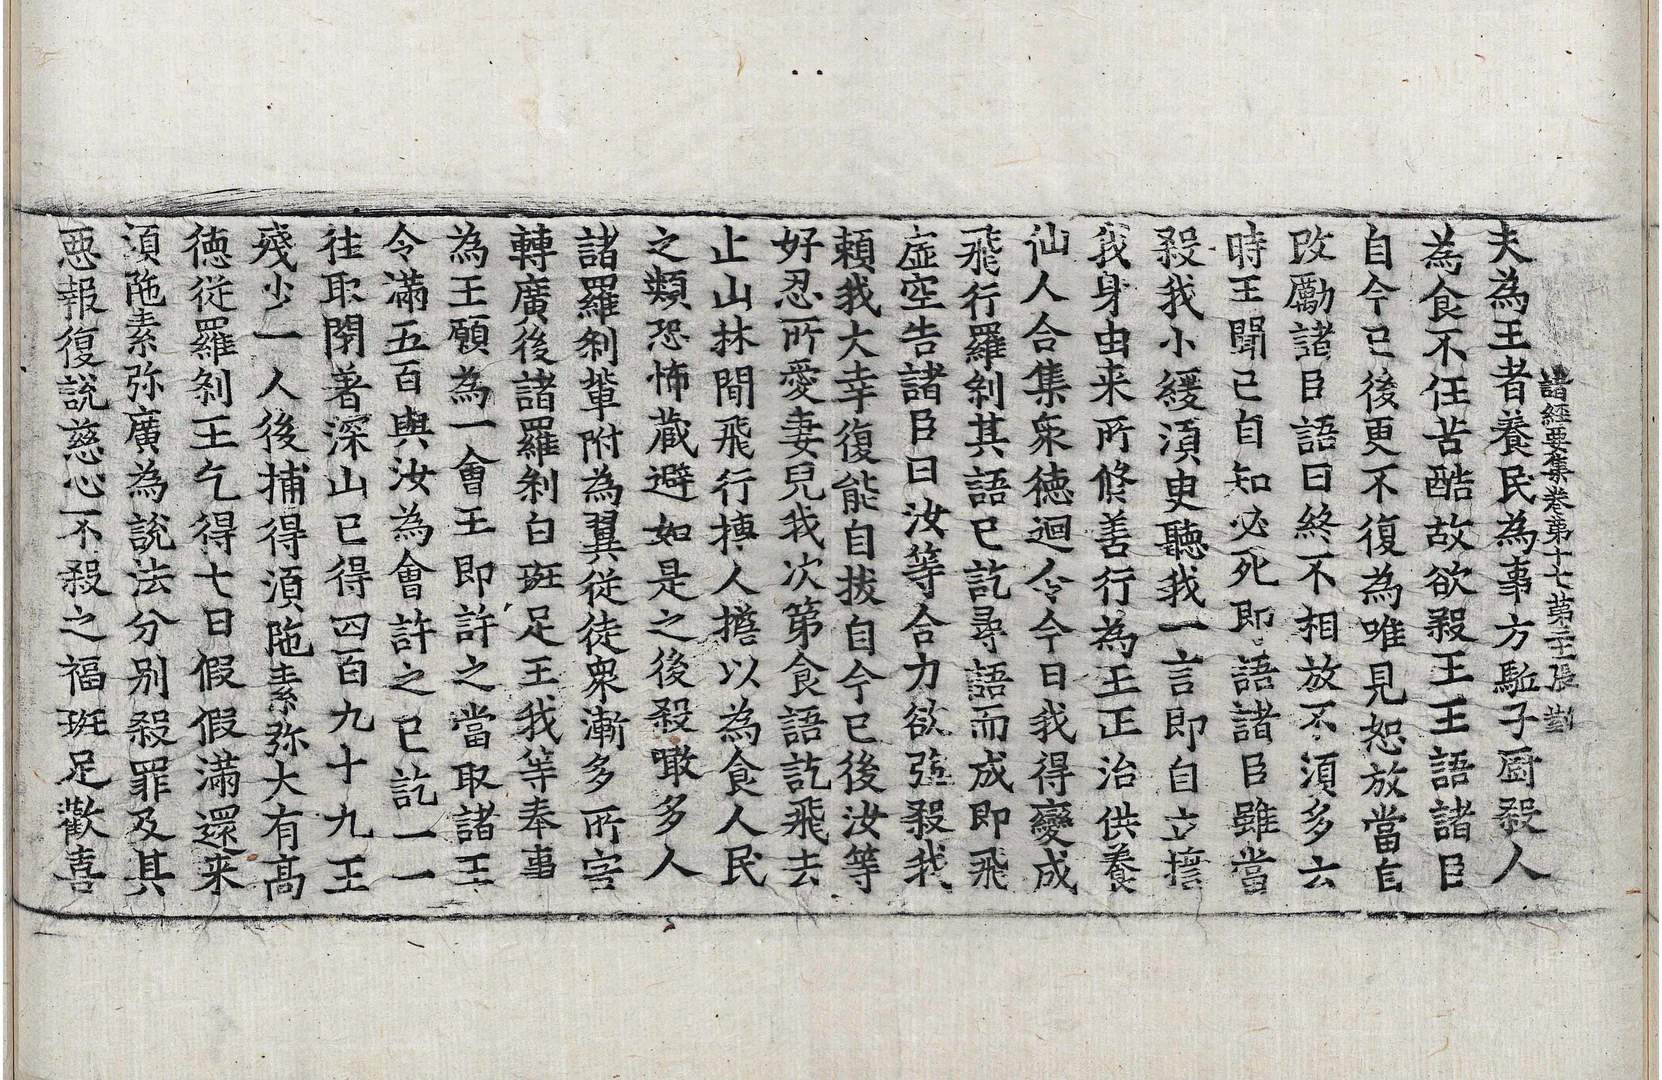 諸經要集卷第十七 第二十張 對
夫為王者養民為事方駈子厨殺人
為食不任苦酷故欲殺王王語諸臣
自今已後更不復為唯見恕放當自
改勵諸臣語曰終不相放不須多云
時王聞已自知必死即語諸臣雖當
殺我小緩須臾聽我一言即自立撎
我身由来所修善行為王正治供養
仙人合集衆徳迴令今日我得變成
飛行羅刹其語已訖尋語而成即飛
虛空告諸臣曰汝等合力欲强殺我
頼我大幸復能自拔自今已後汝等
好忍所愛妻兒我次第食語訖飛去
止山林間飛行摶人擔以為食人民
之類恐怖蔵避如是之後殺噉多人
諸羅刹軰附為翼従徒衆漸多所害
轉廣後諸羅刹白班足王我等奉事
為王願為一會王即許之當取諸王
令滿五百與汝為會許之已訖一一
往取閇著深山已得四百九十九王
殘少一人後捕得須陁素弥大有高
徳従羅刹王乞得七日假假滿還来
須陁素弥廣為說法分别殺罪及其
惡報復說慈心不殺之福班足歡喜